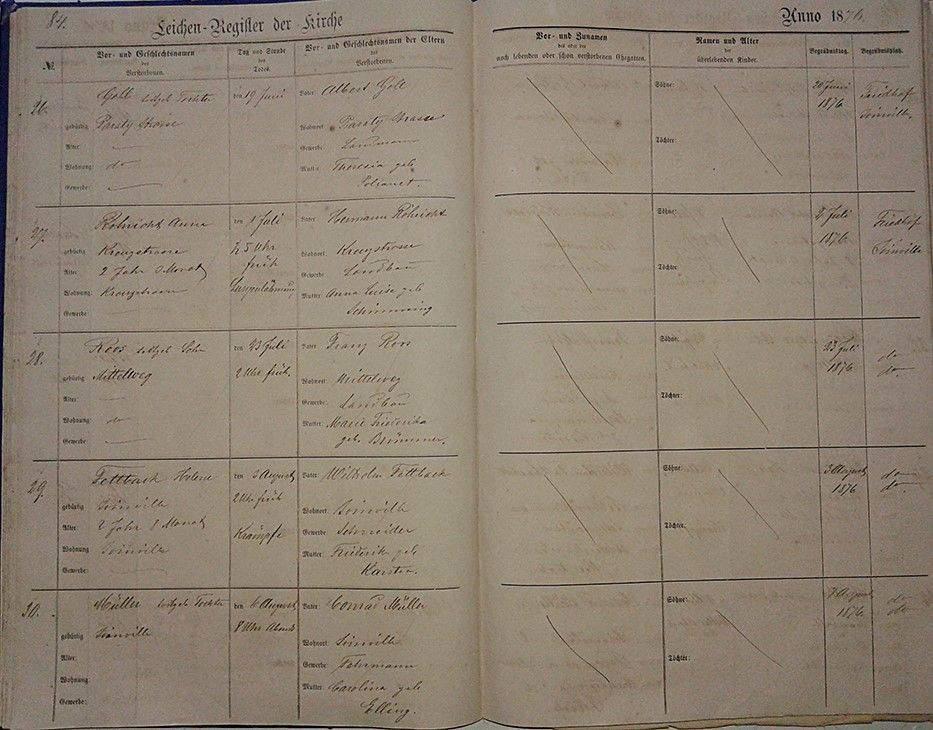 84.
Leichen-Register der Kirche
Anno 1876.
№
Vor- und Geschlechtsnamen
des
Verstorbenen.
Tag und Stunde
des
Todes.
Vor- und Geschlechtsnamen der Eltern
des
Verstorbenen.
Vor- und Zunamen
des oder der
noch lebenden oder schon verstorbenen Ehegatten.
Namen und Alter
der
überlebenden Kinder.
Begräbnißtag.
Begräbnißplatz.
26.
todtgeb Tochter
gebürtig Straße
Alter:
Wohnung: do
Gewerbe:
den 19 Juni
Vater: Albert
Wohnort Strasse
Gewerbe Landmann
Mutter Theresia geb
Söhne:
Töchter:
20 Juni
1876
Friedhof
Joinville.
27.
Röhricht Anna
gebürtig Kreuzstrasse
Alter 2 Jahr Monat
Wohnung: Kreuzstrasse
Gewerbe
den 1 Juli
5 Uhr
früh
Vater Hermann Röhricht
Wohnort: Kreuzstrasse
Gewerbe Landbau
Mutter: Anna Luise geb
Söhne:
Töchter
2 Juli
1876
Friedhof
Joinville
28.
Roos todtgeb Sohn
gebürtig Mittelweg
Alter:
Wohnung: do
Gewerbe:
den 23 Juli
2 Uhr früh.
Vater: Franz Roos
Wohnort Mittelweg
Gewerbe: Landbau
Mutter: Marie Friederike
geb. Brümmer.
Söhne:
Töchter:
23 Juli
1876
do
do
29.
Fettback Helene
gebürtig Joinville
Alter: 2 Jahr 8 Monat
Wohnung Joinville
Gewerbe:
den 3 August
2 Uhr früh
Krämpfe
Vater: Wilhelm Fettback
Wohnort: Joinville
Gewerbe Schneider
Mutter: Friederik geb
Karsten.
Söhne:
Töchter:
3 August
1876
do
do
30.
Müller todtgeb Tochter
gebürtig Joinville
Alter:
Wohnung:
Gewerbe:
den 6 August
8 Uhr Abends
Vater: Conrad Müller
Wohnort Joinville
Gewerbe Fuhrmann
Mutter: Carolina geb
Elling.
Söhne:
Töchter:
7 August
1876
do
do